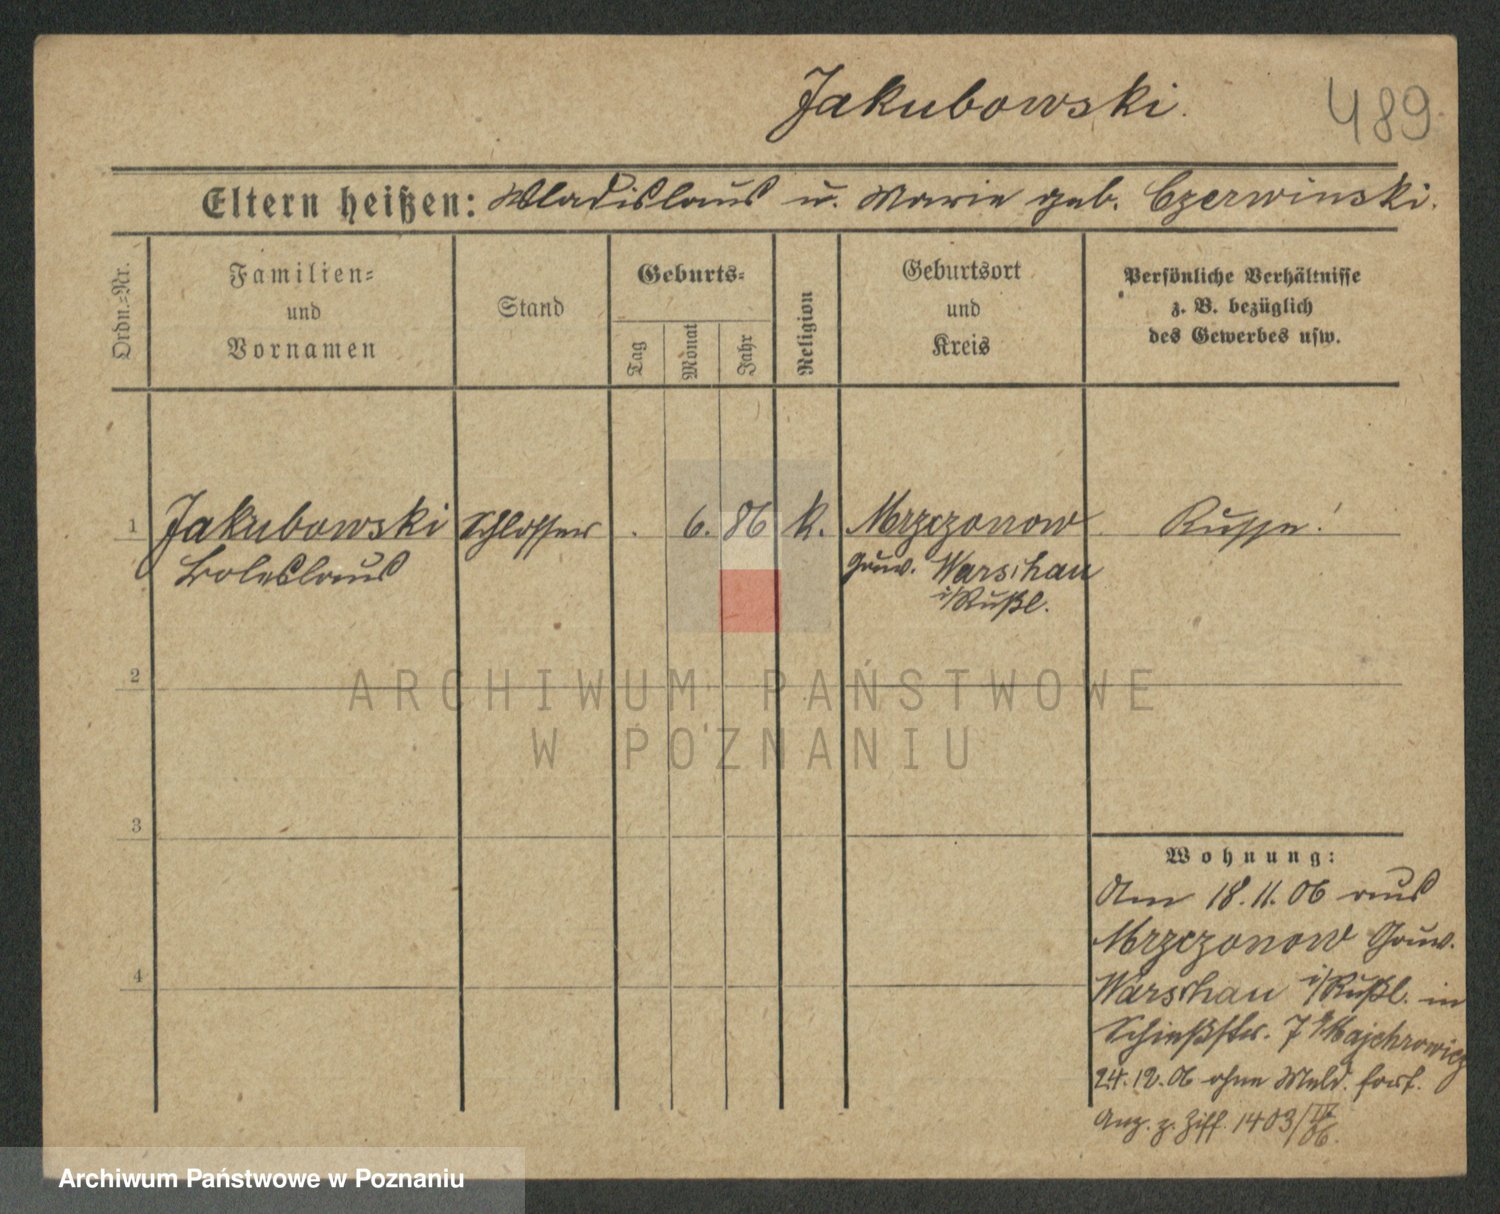 Jakubowski.
489
Eltern heißen: Wladislaus u. Marie geb. Czerwinski.
Ordn.-Nr.
Familien-
und
Vornamen
Stand
Geburts-
Tag
Monat
Jahr
Religion
Geburtsort
und
Kreis
Persönliche Verhältnisse
z. B. bezüglich
des Gewerbes usw.
1 Jakubowski Schlosser . 6. 86 k. Mrzczonow Russe!
Boleslaus
Gouv. Warschau
i/Rußl.
2
ARCHIWUM PAŃSTWOWE
W POZNANIU
3
Wohnung:
Am 18.11.06 aus
Mrzczonow Gouv.
Warschau i/Rußl. in
Schießstr. 7 b/Majchrowicz
24.12.06 ohne Meld. fort.
Anz. z. Ziff. 1403/IV 06.
4
Archiwum Państwowe w Poznaniu